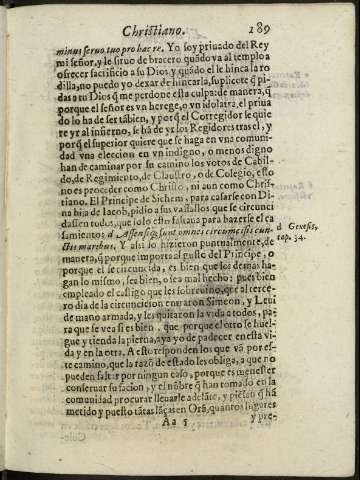 Christiano. 189
minus seruo tuo pro hac re. Yo soy priuado del Rey
mi señor, y le siruo de bracero quãdo va al templo a
ofrecer sacrificio a su Dios, y quãdo el le hinca la ro
dilla, no puedo yo dexar de hincarla, suplicote q̃ pi-
das a tu Dios q̃ me perdone esta culpa: de manera, q̃
porque el señor es vn herege, o vn idolatra, el priua
do lo ha de ser tãbien, y porq̃ el Corregidor se quie
re yr al infierno, se hã de yr los Regidores tras el, y
porq̃ el superior quiere que se haga en vna comuni-
dad vna eleccion en vn indigno, o menos digno
han de caminar por su camino los votos de Cabil-
do, de Regimiento, de Claustro, o de Colegio, esto
no es proceder como Christo, ni aun como Chris-
tiano. El Principe de Sichem, para casarse con Di-
na hija de Iacob, pidio a sus vassallos que se circunci
dassen todos, que solo esto faltaua para hazerse el ca
samiento. d Assensiq́; sunt omnes circumcisis cun-
ctis maribus. Y assi lo hizieron puntualmente, de
manera, q̃ porque importa al gusto del Principe, o
porque el se circuncida, es bien que los demas ha-
gan lo mismo, sea bien, o sea mal hecho: pues bien
empleado el castigo que les sobreuino, que al terce-
ro dia de la circuncision entraron Simeon, y Leui
de mano armada, y les quitaron la vida a todos, pa-
ra que se vea si es bien, que porque el otro se huel-
gue y tienda la pierna, aya yo de padecer en esta vi-
da y en la otra. A esto responden los que vã por es-
te camino, que la razõ de estado les obliga, a que no
pueden faltar por ningun caso, porque es menester
conseruar su facion, y el nõbre q̃ han tomado en la
comunidad procurar lleuarle adelãte, y piensan q̃ hã
metido y puesto tãtas lãças en Orã, quantos lugares
Aa 5 y pre-
d Genesis,
cap. 34.